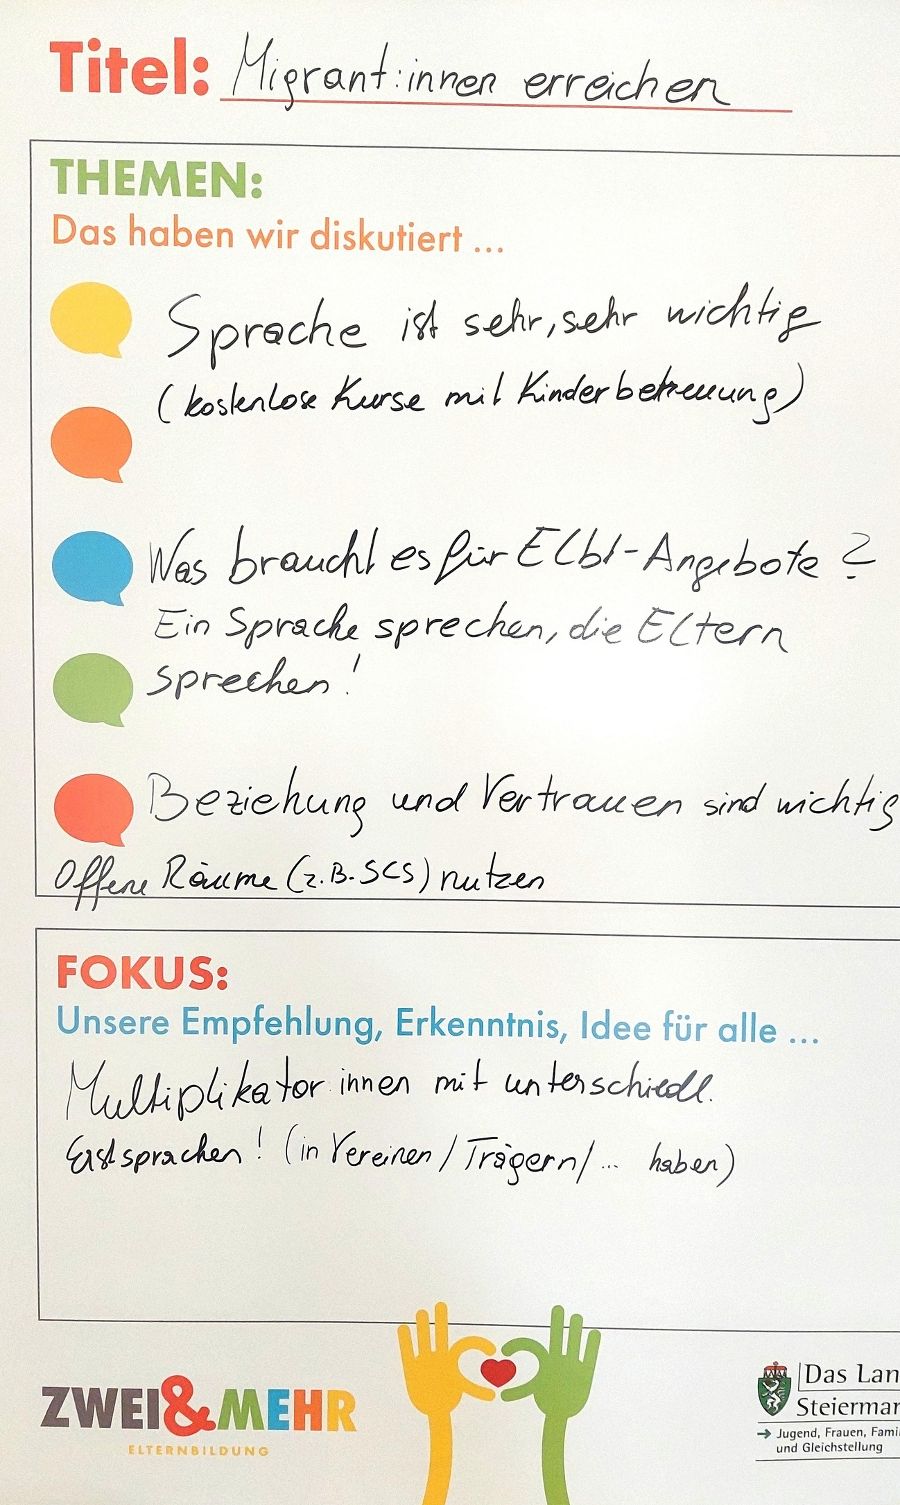 Titel: Migrant:innen erreichen
THEMEN:
Das haben wir diskutiert ...
Sprache ist sehr, sehr wichtig
(kostenlose Kurse mit Kinderbetreuung)
Was braucht es für Elbi-Angebote?
Ein Sprache sprechen, die Eltern
sprechen!
Beziehung und Vertrauen sind wichtig
Offene Räume (z.B. SCS) nutzen
FOKUS:
Unsere Empfehlung, Erkenntnis, Idee für alle ...
Multiplikator:innen mit unterschiedl.
Erstsprachen! (in Vereinen / Trägern / ... haben)
ZWEI&MEHR
ELTERNBILDUNG
Das Lan
Steiermar
→ Jugend, Frauen, Fami
und Gleichstellung